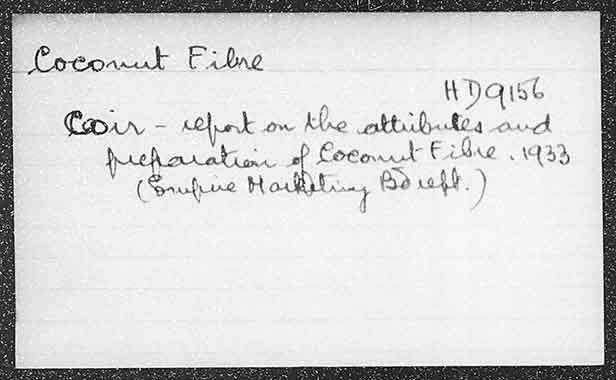 Coconut Fibre
HD9156
Coir - report on the attributes and
preparation of Coconut Fibre. 1933
(Empire Marketing Bd rept.)